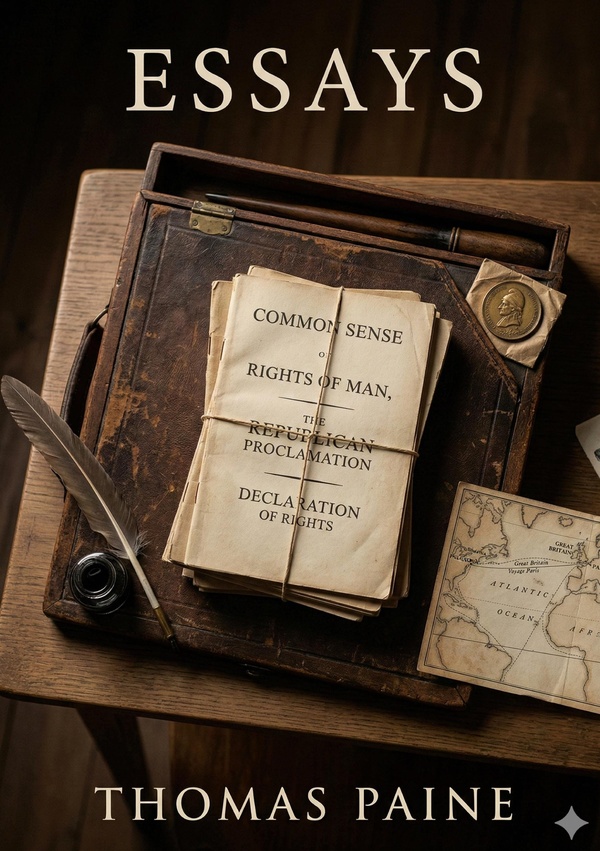 ESSAYS
COMMON SENSE
OR
RIGHTS OF MAN,
THE
REPUBLICAN
PROCLAMATION
DECLARATION
OF RIGHTS
GREAT
BRITAIN
Great Britain
Voyage Paris
ATLANTIC
OCEAN
AFR
THOMAS PAINE